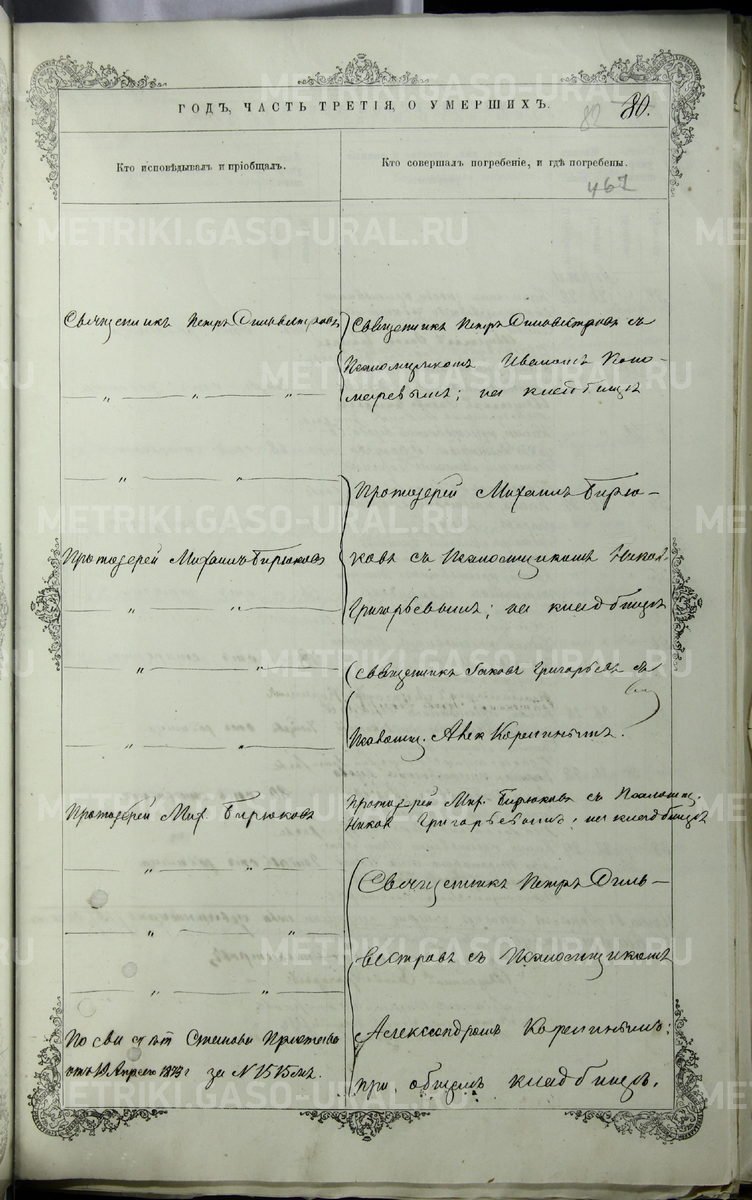 METRIKI.GASO-URAL.RU
ГОДЪ, ЧАСТЬ ТРЕТІЯ, О УМЕРШИХЪ.
80.
Кто исповѣдывалъ и пріобщалъ.
Кто совершалъ погребеніе, и гдѣ погребены.
467
Священникъ Петръ Сильвестровъ
Священникъ Петръ Сильвестровъ съ
Псаломщикомъ Иваномъ Поно-
маревымъ; на кладбищѣ
Протоіерей Михаилъ Бирю-
Протоіерей Михаилъ Бирюковъ
ковъ съ Псаломщикомъ Никол.
Григорьевымъ; на кладбищѣ
Священникъ Іаковъ Григорьевъ съ
Псаломщ. Алек Корепинымъ.
Протоіерей Мих. Бирюковъ
Протоіерей Мих. Бирюковъ съ Псаломщ.
Никол Григорьевымъ; на кладбищѣ
Священникъ Петръ Силь-
вестровъ съ Псаломщикомъ
По свидѣт Станов Пристава
Александромъ Корепинымъ:
отъ Апрѣля 1873 г за N 1515мъ.
при общемъ кладбищѣ.